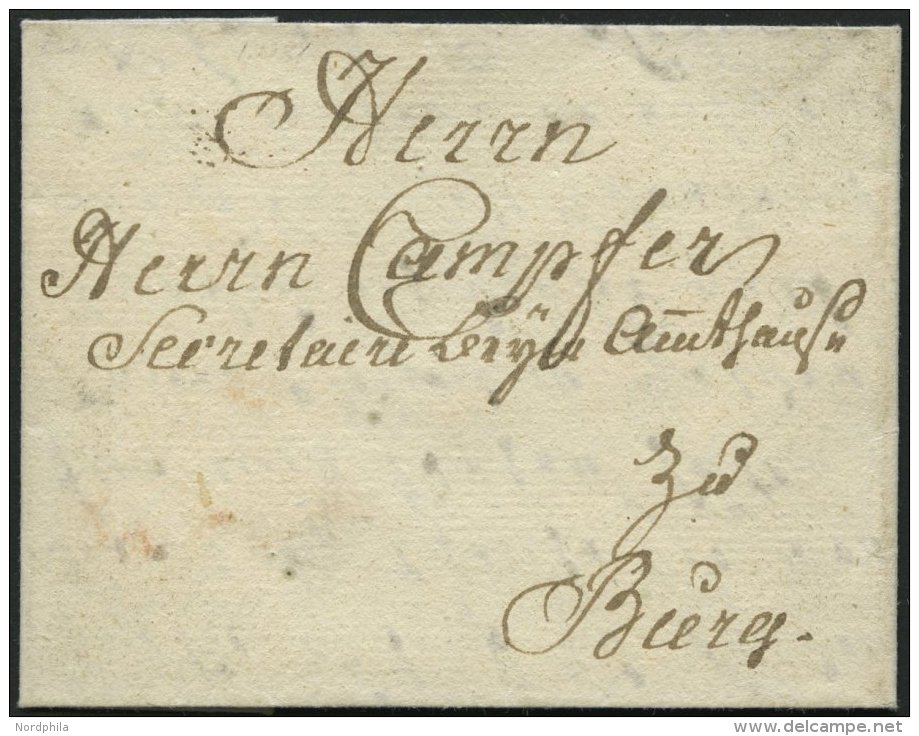 Herrn
Herrn Campfer
Secretaire beÿm Amthauße
zu
Burg.
Nordphila
www.delcampe.net